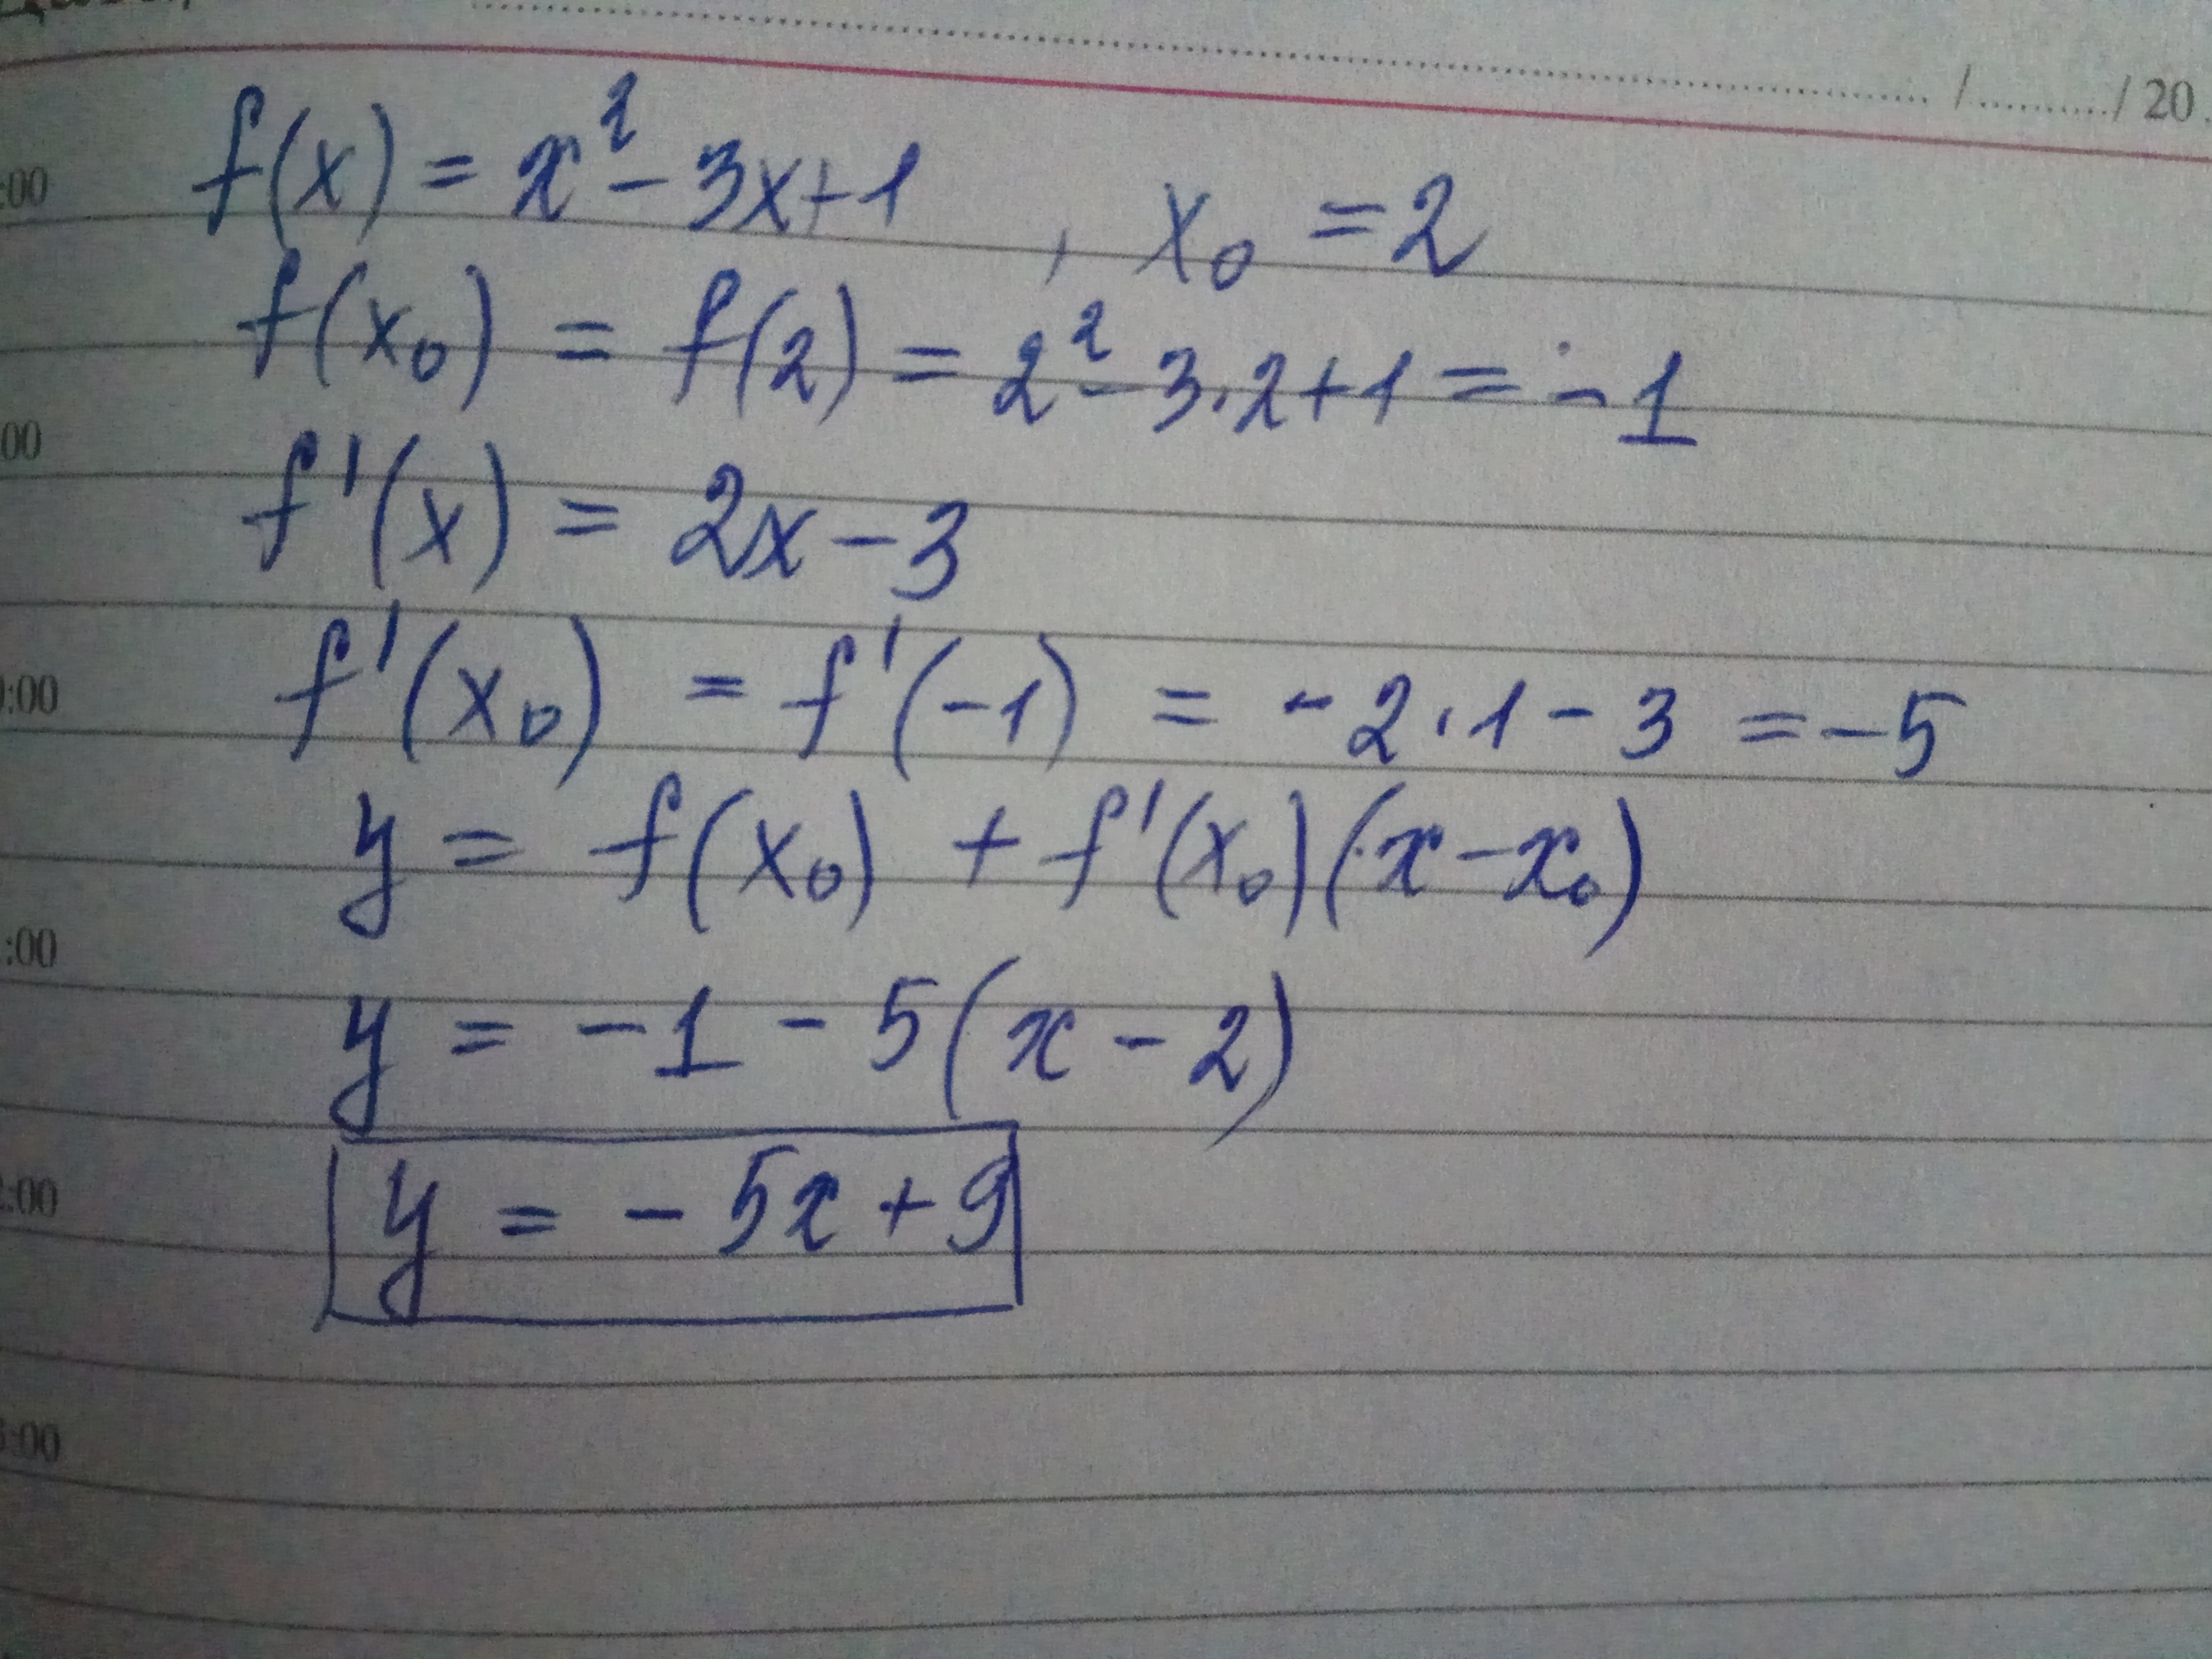 / ........../ 20
f(x) = x² - 3x+1 , x₀ = 2
:00
f(x₀) = f(2) = 2² - 3·2+1 = -1
00
f'(x) = 2x - 3
f'(x₀) = f'(-1) = -2·1 - 3 = -5
:00
y = f(x₀) + f'(x₀)(x - x₀)
:00
y = -1 - 5(x - 2)
y = - 5x + 9
:00
:00